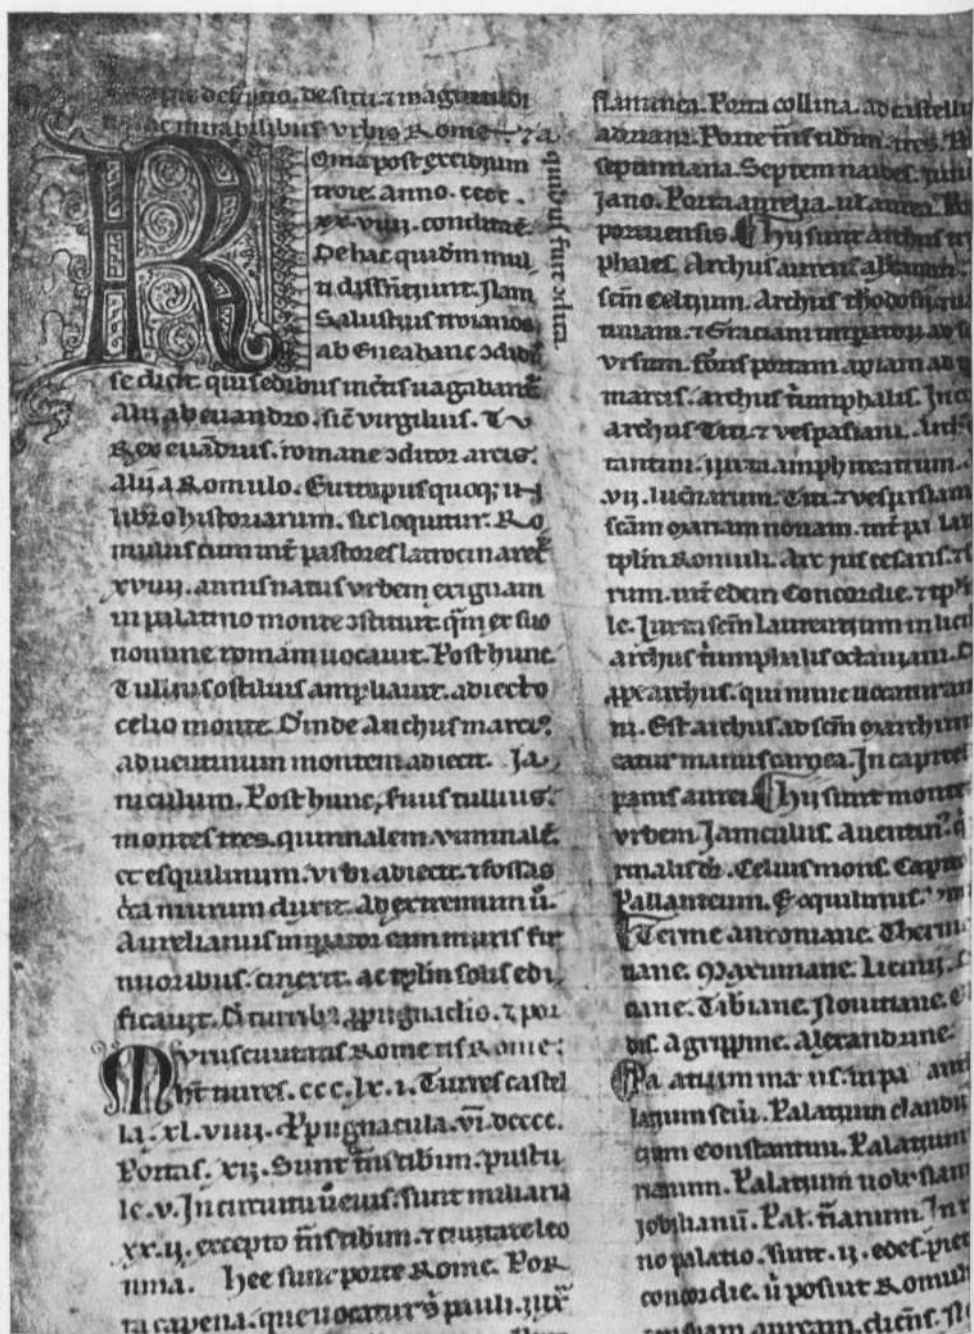 descriptio. de situ ⁊ magnitudi
mirabilibus urbis Rome
quibus fuit ↄdita.
Roma post excidium
troie anno. cccc.
xx.viiij. condita ē.
De hac quidm̄ mul
ti dissn̄tiunt. Nam
Salustius troianos
ab Enea hanc ↄdidis
se dicit. qui sedibus inc̄tis uagabant̄.
Alij ab euandro. sic̄ virgilius. Tv
Rex euādrius. romane ↄditor arcis.
Alij a Romulo. Eutropius quoq; ii
libro historiarum. sic loquitur. Ro
mulus cum int̄ pastores latrocinaret̄
xviiij. annis natus urbem exiguam
in palatino monte ↄstituit. q̄m et suo
nomine romam uocauit. Post hunc
Tullius ostilius ampliauit. adiecto
celio monte. D̄inde Anchus marciꝰ
aduentinum montem adiecit. Ja
niculum. Post hunc, suus tulliusꝰ
montes tres. quirinalem. uiminalē.
et esquilinum. urbi adiecit. ⁊ fossas
c̄ca murum duxit. Ad extremum ū.
Aurelianus impator eam muris fir
mioribus. cinxit. ac tēplm̄ solis edi
ficauit. D̄ turribꝫ ꝓpugnaclio. ⁊ por
Mvrus ciuitatis Rome
ht̄ turres. ccc. lx. i. Turres castel
la. xl. viiij. Ꝓpugnacula. vī. dcccc.
Portas. xij. Sunt tn̄stibim. pustu
le. v. In circuitu ū eius. sunt miliaria
xx. ij. excepto tn̄stibim. ⁊ ciuitate leo
nina. Hee sunt porte Rome. Por
ta capena. que uocatur s̄ pauli. iux̄
flaminea. Porta collina. ad castellu
adriani. Porte tn̄stibim. tres. P
septimiana. Septem naides. iun
Jano. Porta aurelia. ut aurea. Po
portuensis. Hij sunt Archus tr
phales. Archus aureus
scm̄ Celsum. Archus thodosij.
tiniam. ⁊ Graciani impatoȝ. ad s
vrsum. foris portam. apiam ad
martis. archus t̄umphalis. In ci
archus Titi. ⁊ vespasiani.
tantini. iuxta amphiteatrum.
.vij. luc̄narum. Titi. ⁊ vespasiani
scām mariam nouam. int̄ pa
tp̄lm̄ Romuli. Arc ius cesaris.
rum. int̄ edem Concordie. ⁊ tp
le. Juxta scm̄ Laurentium in luci
archus t̄umphalis octauiani.
archus. qui nunc uocantur an
ni. Est archus ad scm̄ marchum
catur manus carnea. In capitol
panis aurei. Hij sunt montes
vrbem. Janiculus. Auentin.
rinalis. Celius mons. Capit
Pallanteum. Exquilinus.
Terme antoniane. Therm
nane. Maxumane. Licinij.
ane. Tibiane. Nouitiane.
dis. Agrippine. Alexandrine
Pa atium ma us. in pa
latium seūi. Palatium claudij
tium Constantini. Palatium
rianum. Palatium
Jobilianū. Pal. t̄ianum. In
no palatio. sunt. ij. edes. piet
concordie. ū posuit Romul
suam auream. dicens. N